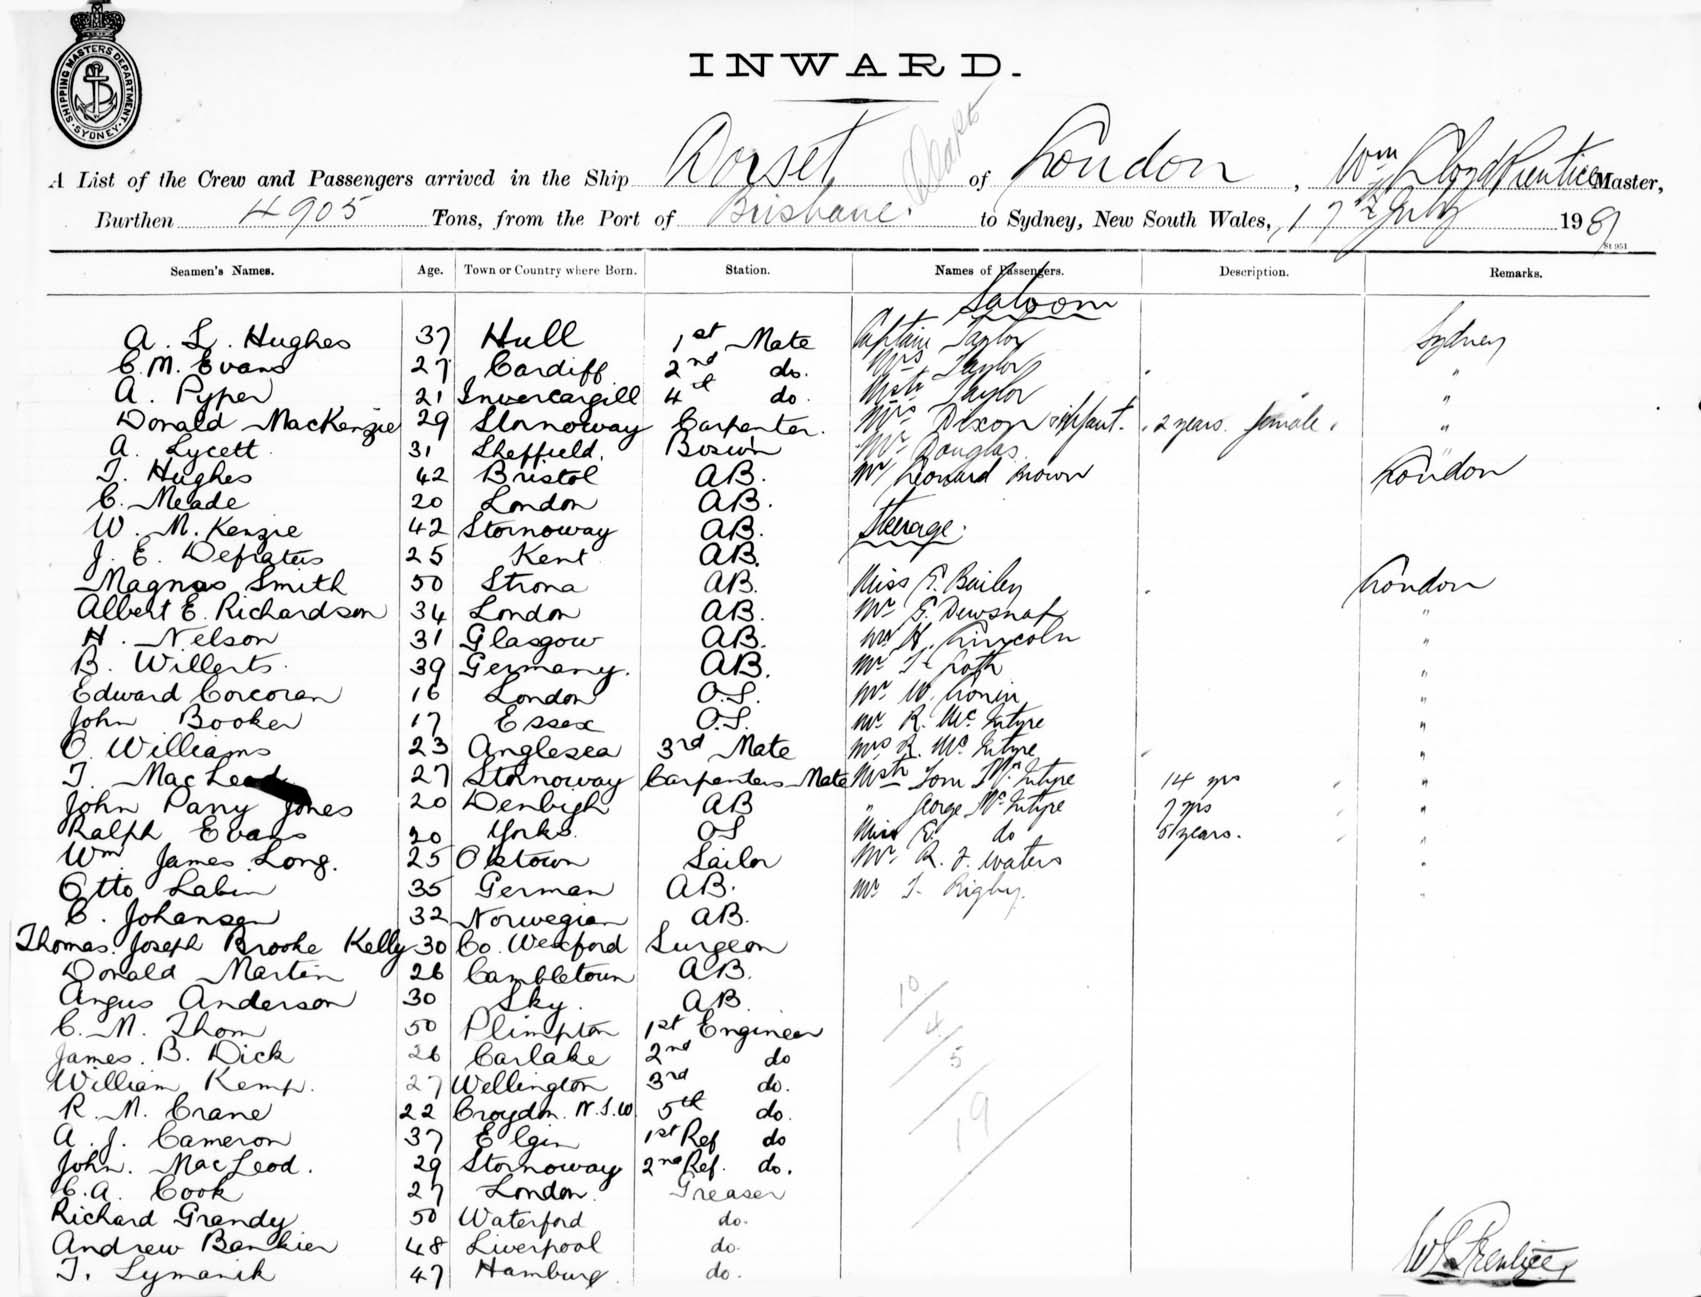 SHIPPING MASTERS DEPARTMENT. SYDNEY.
INWARD.
A List of the Crew and Passengers arrived in the Ship Dorset of London, Wm Lloyd Prentice Master,
Burthen 4905 Tons, from the Port of Brisbane. to Sydney, New South Wales, 17th July 19
St 951
Seamen's Names. Age. Town or Country where Born. Station. Names of Passengers. Description. Remarks.
Saloon
A. L. Hughes 37 Hull 1st Mate Captain Taylor Sydney
C. M. Evans 27 Cardiff 2nd do. Mrs Taylor "
A. Pyper 21 Invercargill 4th do. Mstr Taylor "
Donald MacKenzie 29 Stornoway Carpenter. Mrs Dixon & Infant. 2 years. female. "
A. Lycett 31 Sheffield. Bosun Mr Douglas. "
T. Hughes 42 Bristol AB. Mr Leonard Brown London
C. Meade 20 London AB.
W. M. Kenzie 42 Stornoway AB. Steerage.
J. E. Defratus 25 Kent AB.
Magnos Smith 50 Strona AB. Miss E. Bailey London
Albert E. Richardson 34 London AB. Mr E. Dewsnap "
H. Nelson 31 Glasgow AB. Mr H. Lincoln "
B. Willerts. 39 Germany. AB. Mr "
Edward Corcoran 16 London O.S. Mr W. Cronin "
John Booker 17 Essex O.S. Mr. R. McIntyre "
O. Williams 23 Anglesea 3rd Mate Mrs R. McIntyre "
T. MacLeod 27 Stornoway Carpenters Mate Mstr Tom McIntyre 14 yrs "
John Parry Jones 20 Denbigh AB " George McIntyre 7 yrs "
Ralph Evans 20 Yorks. OS Miss E. do 5 years. "
Wm James Long. 25 Sailor Mr. R. J. Waters "
Otto Labin 35 German AB. Mr T. Rigby. "
C. Johansen 32 Norwegian AB.
Thomas Joseph Brooke Kelly 30 Co. Wexford Surgeon
Donald Martin 26 Cambletown AB.
Angus Anderson 30 Sky. AB 10
C. M. Thom 50 Plimpton 1st Engineer 4
James. B. Dick 26 Carlake 2nd do 5
William Kemp. 27 Wellington 3rd do.
R. M. Crane 22 Croydon. N.S.W 5th do. 19
A. J. Cameron 37 Elgin 1st Ref do
John. MacLeod. 29 Stornoway 2nd Ref. do.
C. A. Cook 27 London. Greaser
Richard Grandy 50 Waterford do.
Andrew Bankier 48 Liverpool do.
T. Lymanik 47 Hamburg. do.
W L Prentice